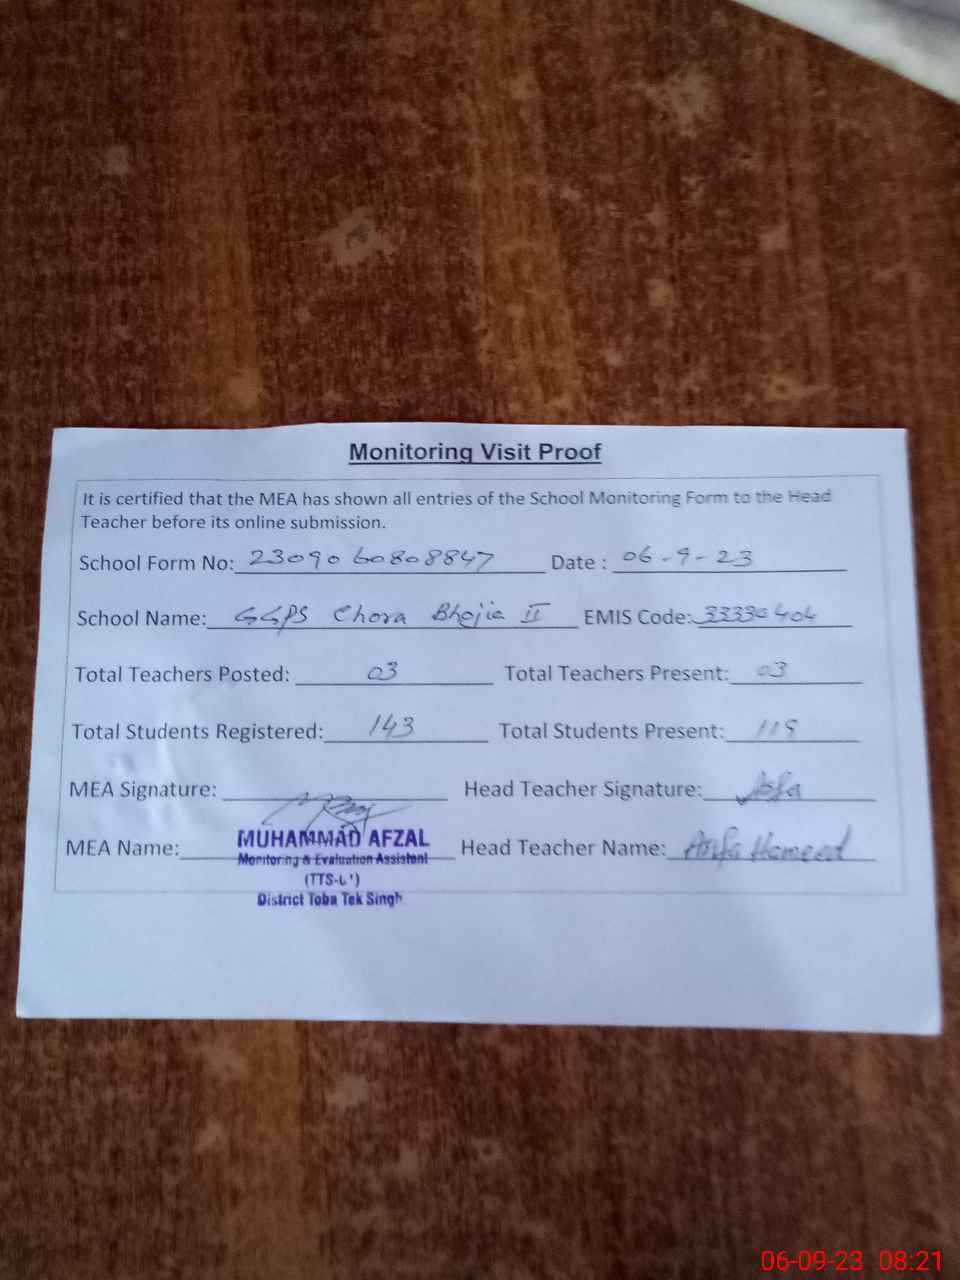 Monitoring Visit Proof
It is certified that the MEA has shown all entries of the School Monitoring Form to the Head
Teacher before its online submission.
School Form No: 2309060808847 Date : 06-9-23
School Name: GGPS Chora Bhojia II EMIS Code: 33330404
Total Teachers Posted: 03 Total Teachers Present: 03
Total Students Registered: 143 Total Students Present:
MEA Signature: Head Teacher Signature:
MEA Name: MUHAMMAD AFZAL Head Teacher Name: Hameed
Monitoring & Evaluation Assistant
District Toba Tek Singh
06-09-23 08:21